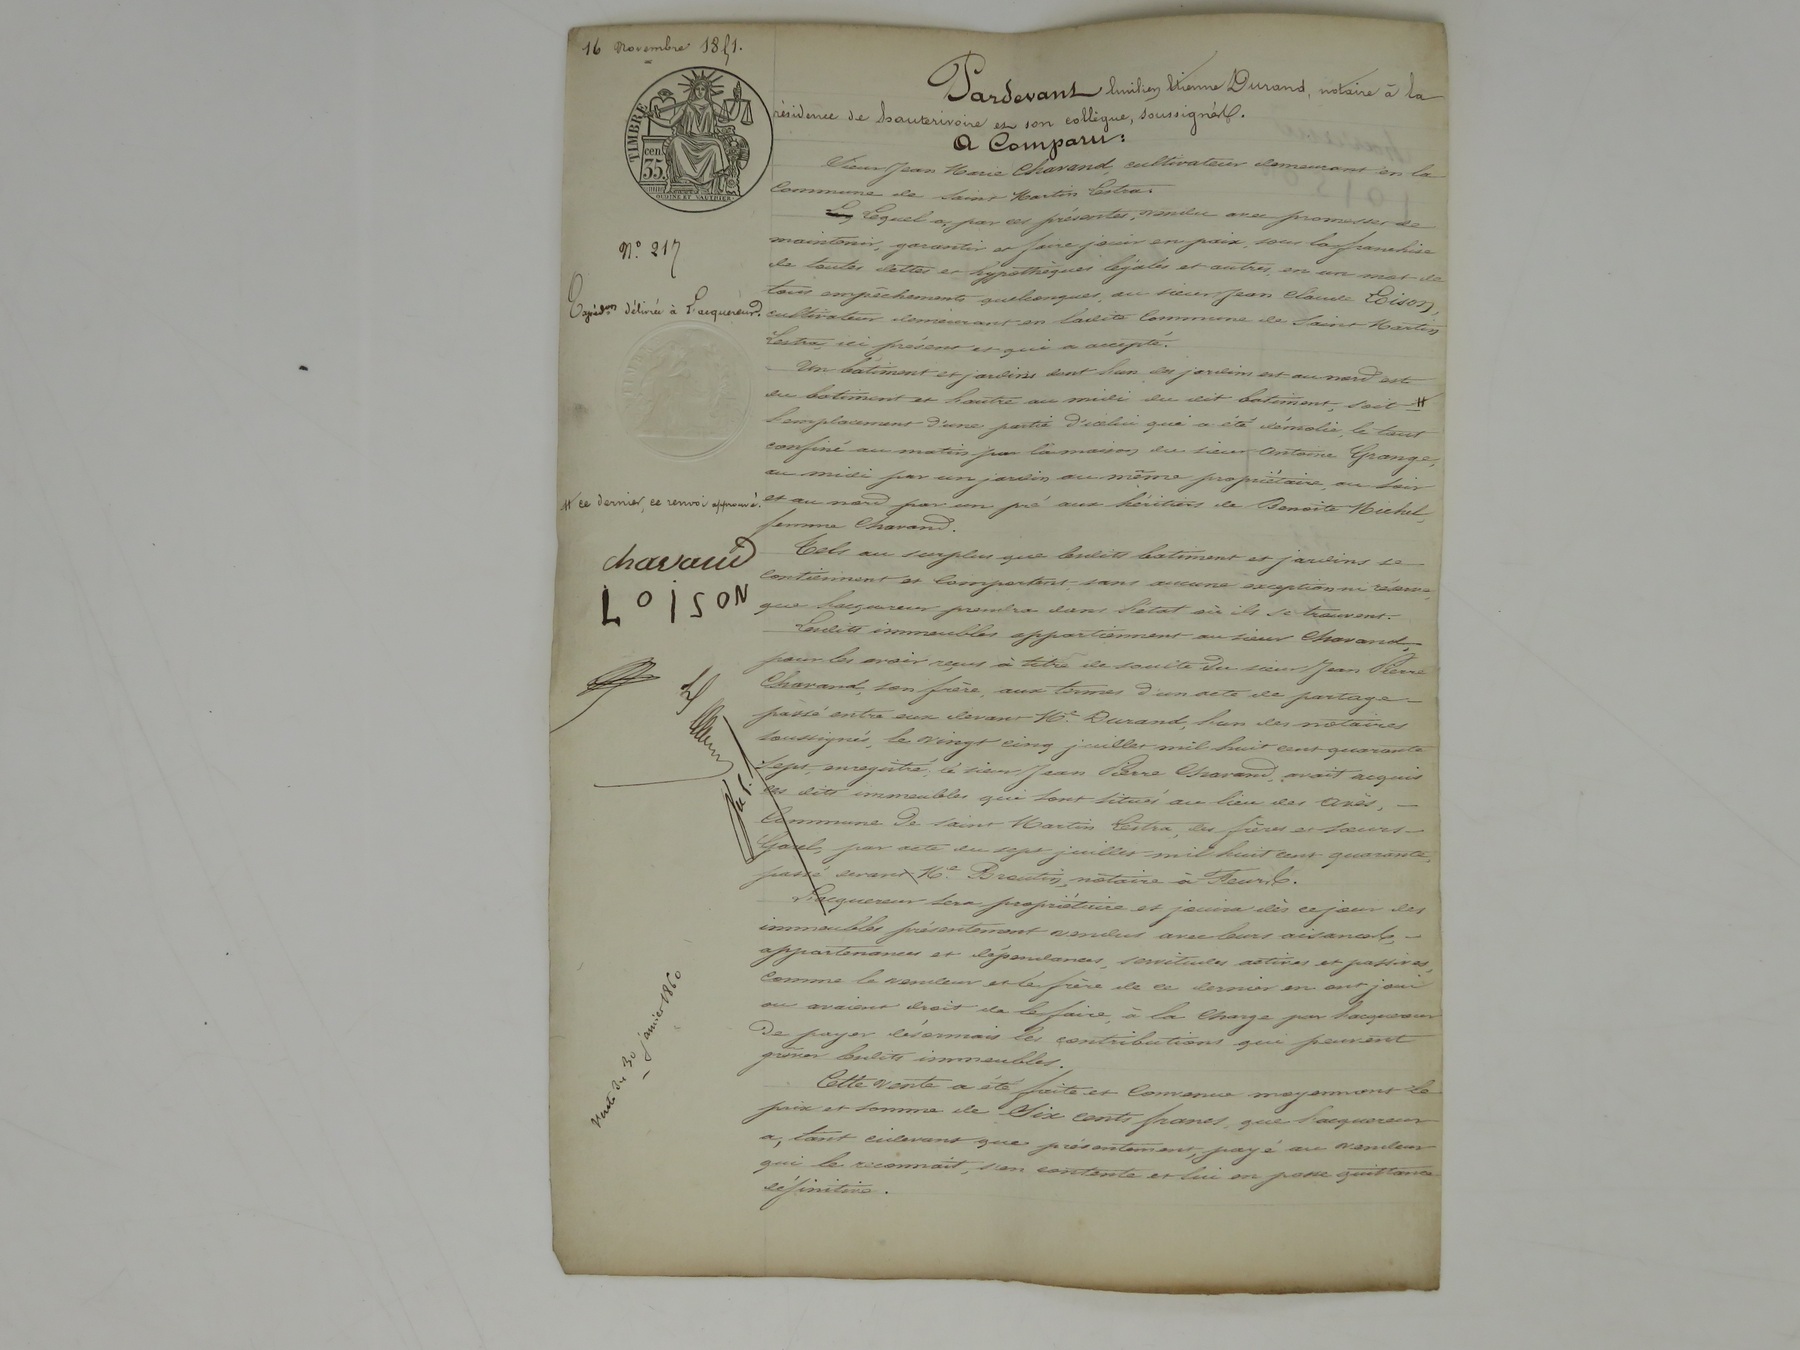 16 novembre 1851.
TIMBRE
cen.
35.
OUDINÉ ET VAUTHIER
N.° 217
délivrée à L'acquéreur.
# ce dernier, ce renvoi approuvé.
chavand
LOISON
Vente du 30 janvier 1860
Pardevant Étienne Durand, notaire à la
résidence de hauterivoire et son collègue, soussignés.
A Comparu:
Sieur Jean Marie Chavand, cultivateur demeurant en la
Commune de Saint Martin Lestra.
Lequel a, par ces présentes, vendu avec promesses de
maintenir, garantir et faire jouir en paix, sous la franchise
de toutes dettes et hypothèques légales et autres, en un mot de
tous empêchements quelconques, au sieur Jean Claude Loison,
cultivateur demeurant en ladite Commune de Saint Martin
Lestra, ici présent et qui a accepté.
Un bâtiment et jardins dont l'un des jardins est au nord est
du bâtiment et l'autre au midi du dit bâtiment, soit #
l'emplacement d'une partie d'icelui qui a été démolie, le tout
confiné au matin par la maison du sieur Antoine Grange,
au midi par un jardin au même propriétaire, au soir
et au nord par un pré aux héritiers de Benoîte Michel,
femme Chavand.
Tels au surplus que lesdits bâtiment et jardins se
contiennent et comportent sans aucune exception ni réserve,
que l'acquéreur prendra dans l'état où ils se trouvent.
Lesdits immeubles appartiennent au sieur Chavand,
pour les avoir reçus à titre de soulte du sieur Jean Pierre
Chavand, son frère, aux termes d'un acte de partage
passé entre eux devant M.e Durand, l'un des notaires
soussignés, le vingt cinq juillet mil huit cent quarante
sept, enregistré; le sieur Jean Pierre Chavand, avait acquis
les dits immeubles qui sont situés au lieu des
Commune de Saint Martin Lestra, des frères et sœurs
par acte du sept juillet mil huit cent quarante,
passé devant M.e notaire à Feurs.
L'acquéreur sera propriétaire et jouira dès ce jour des
immeubles présentement vendus avec leurs aisances,
appartenances et dépendances, servitudes actives et passives,
comme le vendeur et le frère de ce dernier en ont joui
ou avaient droit de le faire, à la charge par l'acquéreur
de payer désormais les contributions qui peuvent
grever lesdits immeubles.
Cette vente a été faite et convenue moyennant le
prix et somme de Six cents francs, que l'acquéreur
a, tant cidevant que présentement, payé au vendeur
qui le reconnaît, s'en contente et lui en passe quittance
définitive.